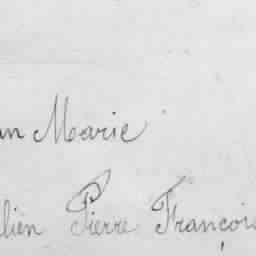 an Marie
lien Pierre Françoi